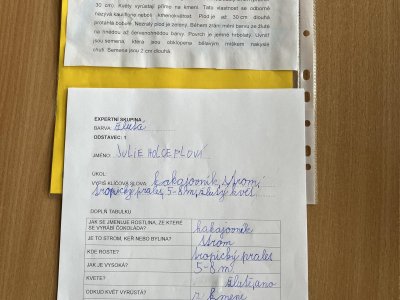 30 cm. Květy vyrůstají přímo na kmeni. Tato vlastnost se odborně
nazývá kauliflorie neboli kmenokvětost. Plod je až 30 cm dlouhá
protáhlá bobule. Nezralý plod je zelený. Během zrání mění barvu ze žluté
na hnědou až červenohnědou barvu. Povrch je jemně hrbolatý. Uvnitř
jsou semena, která jsou obklopena bělavým míškem nakyslé
chuti. Semena jsou 2 cm dlouhá.
EXPERTNÍ SKUPINA
BARVA: žlutá
ODSTAVEC: 1
JMÉNO: JULIE
ÚKOL:
VYPIŠ KLÍČOVÁ SLOVA: kakaovník, strom,
tropický prales, 5-8 m, žlutý květ,
DOPLŇ TABULKU
JAK SE JMENUJE ROSTLINA, ZE KTERÉ
SE VYRÁBÍ ČOKOLÁDA? kakaovník
JE TO STROM, KEŘ NEBO BYLINA? strom
KDE ROSTE? tropický prales
JAK JE VYSOKÁ? 5-8 m
KVETE? žlutě, ano
ODKUD KVĚT VYRŮSTÁ? z kmene